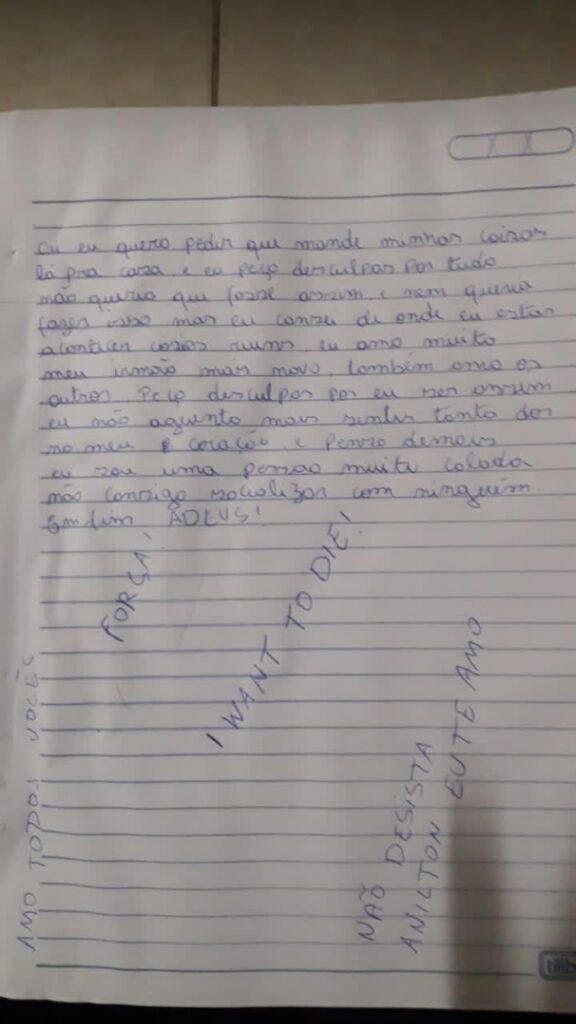 Oii eu quero pedir que mande minhas coisas
lá pra casa, e eu peço desculpas por tudo
não queria que fosse assim, e nem queria
fazer isso mas eu cansei de onde eu estar
acontecer coisas ruins, eu amo muito
meu irmão mais novo, também amo os
outros. Peço desculpas por eu ser assim
eu não aguento mais sentir tanto dor
no meu coração, e penso demais
eu sou uma pessoa muito calada
não consigo socializar com ninguém.
Em fim ADEUS!
FORÇA!
I WANT TO DIE!
AMO TODOS VOCÊS
NÃO DESISTA
ANILTON EU TE AMO